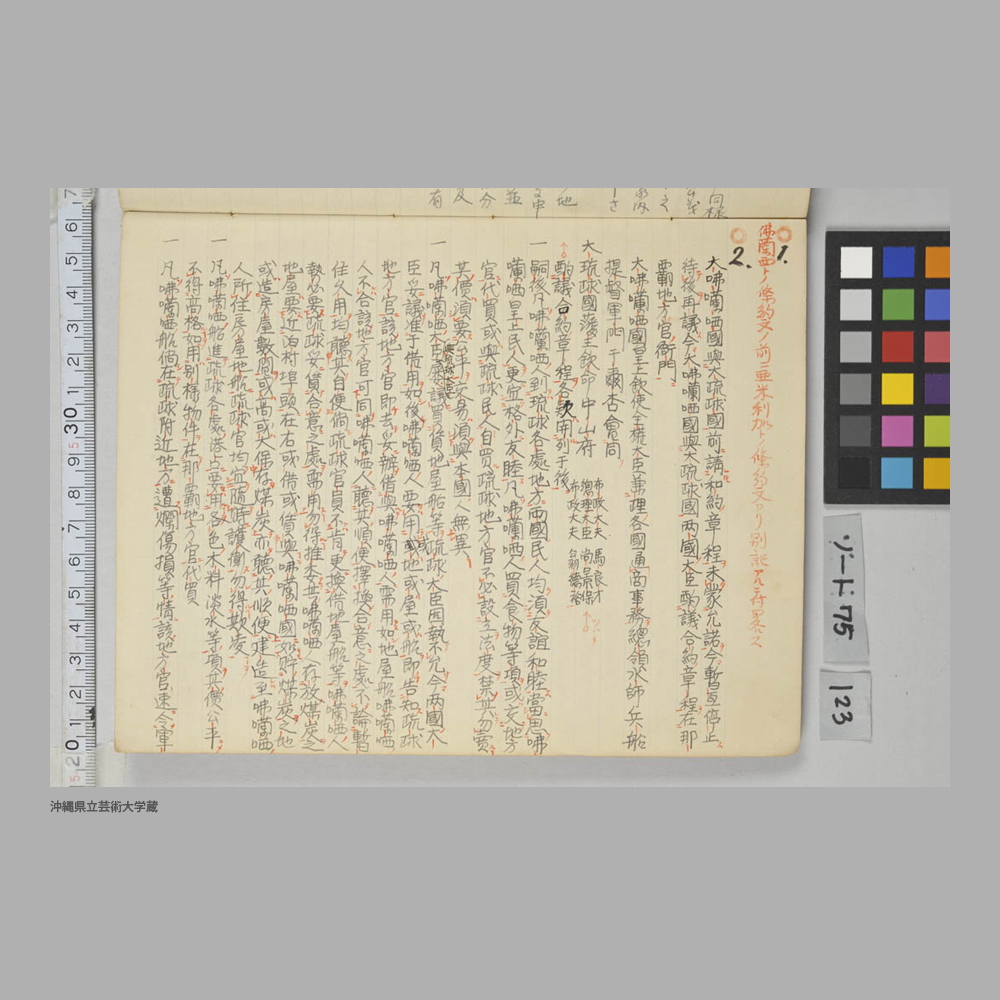 1.
佛蘭西トノ條約文ノ前ニ亜米利加トノ條約文アリ別記アル
2.
大咈囒哂國與大琉球國前講和約章程未蒙允諾今暫亘停止
待後再議今大咈囒哂國與大琉球國両國大臣酌議合約章程在那
覇地方官衙門
大咈囒哂國皇上欽使全権大臣兼理各國通商事務總領水師兵船
提督軍門
會同
大琉球國
欽命中山府
布政大夫 馬良才
總理大臣 尚景保
布政大夫 翁德裕
酌議合約章程各款開列于後
一嗣後凡咈囒哂人到琉球各處地方両國民人均須友誼和睦當思咈
囒哂皇上民人更益格外友睦凡咈囒哂人買食物等項或交地方
官代買或與琉球民人自買琉球地方官不必設立法度禁其勿賣
其價須要公平交易須與本國人無異
一凡咈囒哂大臣屡議買賃地屋船等琉球大臣固執不允今両國大
臣妥議准于借用如後咈囒哂人要用或地或屋或船即告知琉球
地方官該地方官即去妥辦借與咈囒哂人需用如地屋船咈囒哂
人不合該地方官可同咈囒哂人聽其順便擇換合意之處不論暫
住久用均聽其自便倘琉球官員不肯更換借地屋船等咈囒哂人
執公要琉球妥賃合意之處需用勿得推委其咈囒哂人存放煤炭之
地屋要近泊村埠頭左右或借或賃與咈囒哂國如貯煤炭之地
或造房屋數間或尚或大俻存煤炭亦聽其順便建造至咈囒哂
人所住房屋地船琉球官均宜隨時護衛勿得欺凌
一凡咈囒哂船進琉球各處湊占要用各色木料淡水等項其價公平
不得高格如用別樣物件在那覇地方官代買
一凡咈囒哂船倘在琉球附近地方遭爛傷損等情該地方官速令軍
ゾード75
123
沖縄県立芸術大学蔵